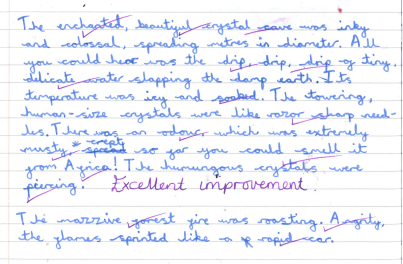 The enchanted, beautiful crystal cave was inky
and colossal, spreading metres in diameter. All
you could hear was the drip, drip, drip of tiny,
delicate water slapping the damp earth. Its
temperature was icy and soaked. The towering,
human-size crystals were like razor sharp need-
les. There was an odour, which was extremely
musty, * crept
spread so far you could smell it
from Africa! The humungous crystals were
piercing. Excellent improvement.
The massive forest fire was roasting. Angrily,
the flames sprinted like a rapid car.